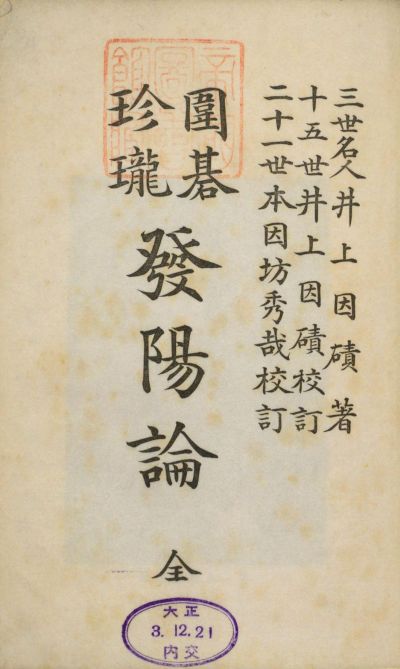 三世名人井上因碩著
十五世井上因碩校訂
二十一世本因坊秀哉校訂
圍碁
珍瓏
發陽論
全
大正
3.12.21
内交